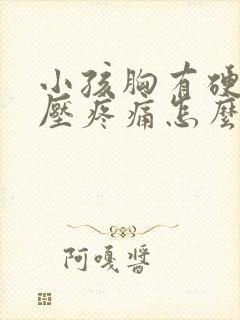 小孩胸有硬
壓疼痛怎麼
阿嘎醬